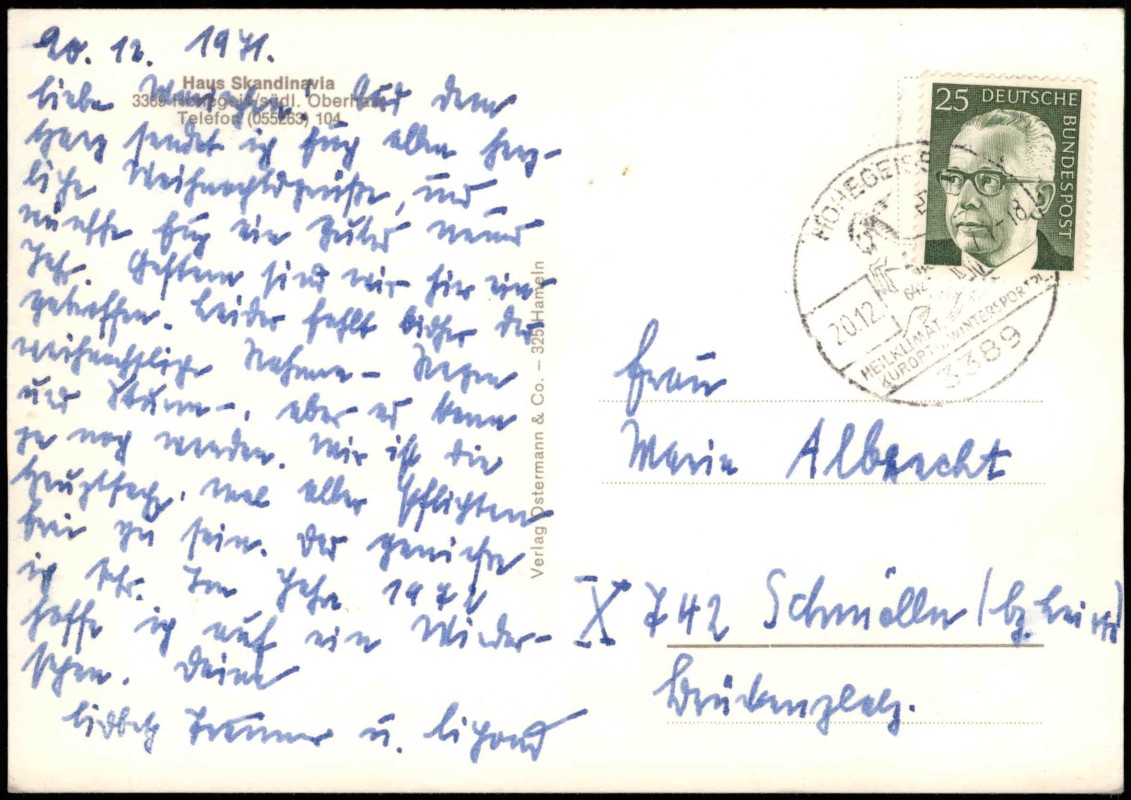 20.12. 1971.
Haus Skandinavia
3389 Hohegeiß/südl. Oberharz
Telefon (055263) 104
Liebe Aus dem
Harz sendet ich Euch allen herz-
liche Weihnachtsgrüße, und
wünsche Euch ein gutes neues
Jahr. Gestern sind wir hier ein-
getroffen. Leider fehlt bisher der
weihnachtliche Rahmen – Regen
und Sturm –, aber es kann
ja noch werden. Mir ist die
Hauptsach, mal aller Pflichten
frei zu sein. Das genieße
ich sehr. Im Jahr 1972
hoffe ich auf ein Wieder-
sehen. Deine
u.
Verlag Ostermann & Co. – 325 Hameln
25 DEUTSCHE BUNDESPOST
HOHEGEISS
20.12.
HEILKLIMAT.
KURORT WINTERSPORTPL.
3389
Frau
Marie Albrecht
X 742 Schmölln
Brückenplatz.